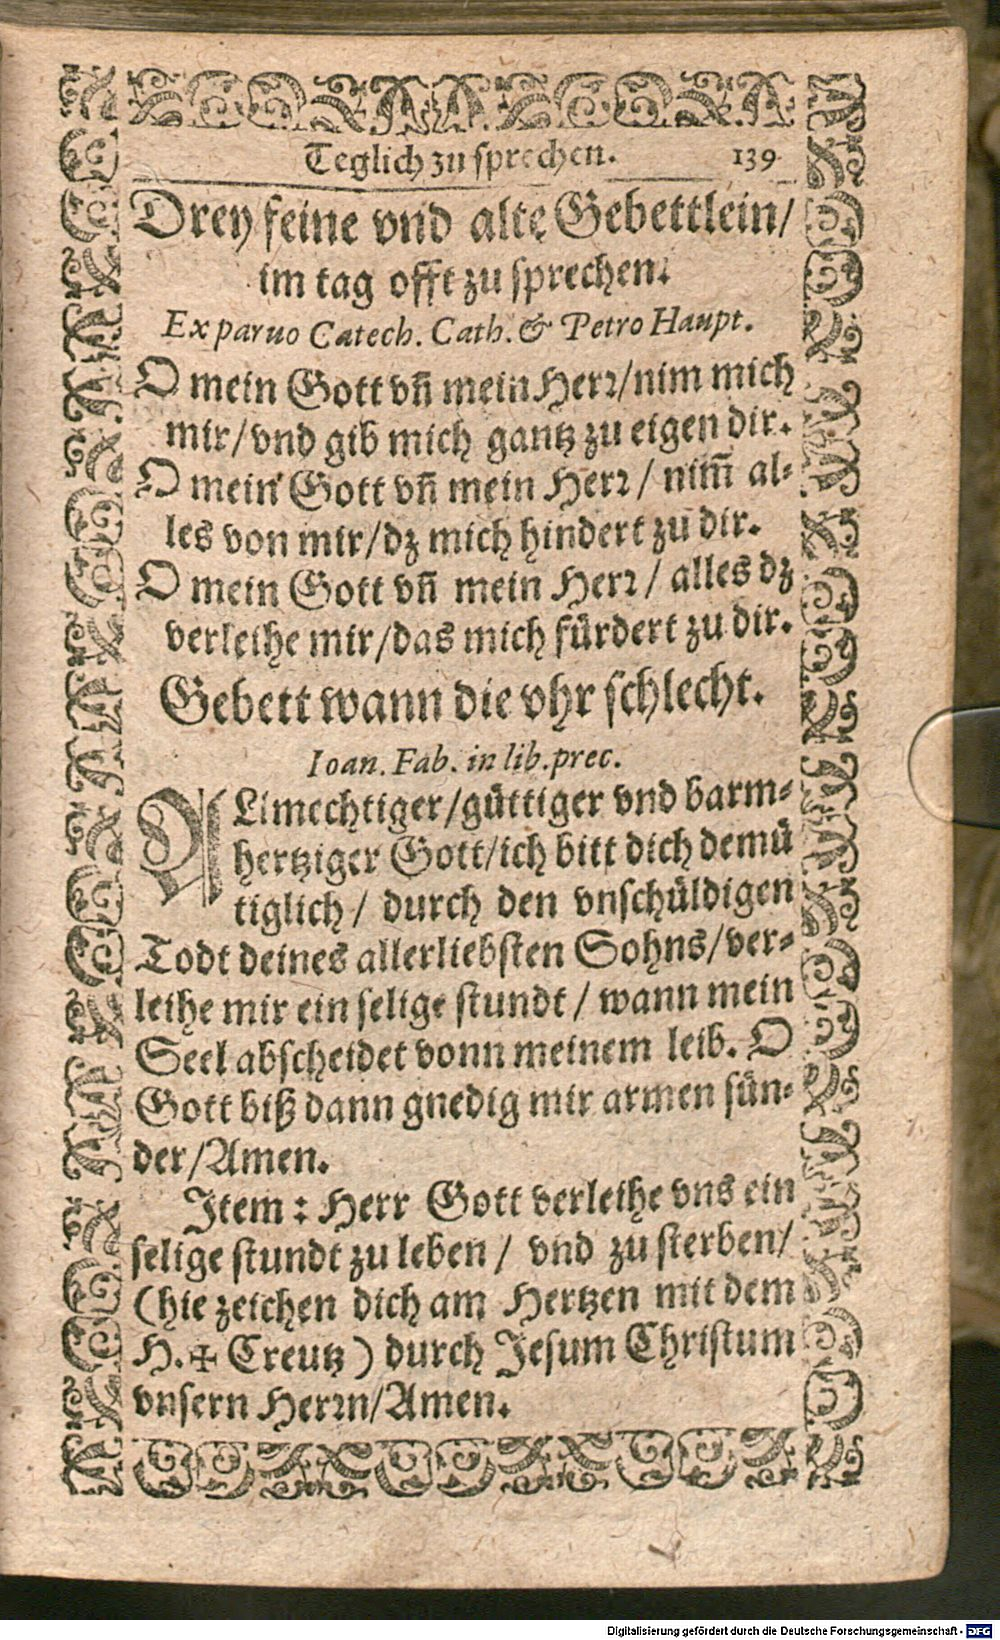 Teglich zu sprechen. 139
Drey feine vnd alte Gebettlein/
im tag offt zu sprechen.
Ex paruo Catech. Cath. & Petro Haupt.
O mein Gott vñ mein Herꝛ/nim mich
mir/vnd gib mich gantz zu eigen dir.
O mein Gott vñ mein Herꝛ/ nim̃ al-
les von mir/dz mich hindert zu dir.
O mein Gott vñ mein Herꝛ/ alles dz
verleihe mir/das mich fürdert zu dir.
Gebett wann die vhr schlecht.
Ioan. Fab. in lib. prec.
ALlmechtiger/güttiger vnd barm-
hertziger Gott/ich bitt dich demü
tiglich/ durch den vnschüldigen
Todt deines allerliebsten Sohns/ver-
leihe mir ein selige stundt/ wann mein
Seel abscheidet vonn meinem leib. O
Gott biß dann gnedig mir armen sün-
der/Amen.
Item: Herr Gott verleihe vns ein
selige stundt zu leben/ vnd zu sterben/
(hie zeichen dich am Hertzen mit dem
H. ✠ Creutz) durch Jesum Christum
vnsern Herꝛn/Amen.
Digitalisierung gefördert durch die Deutsche Forschungsgemeinschaft - DFG